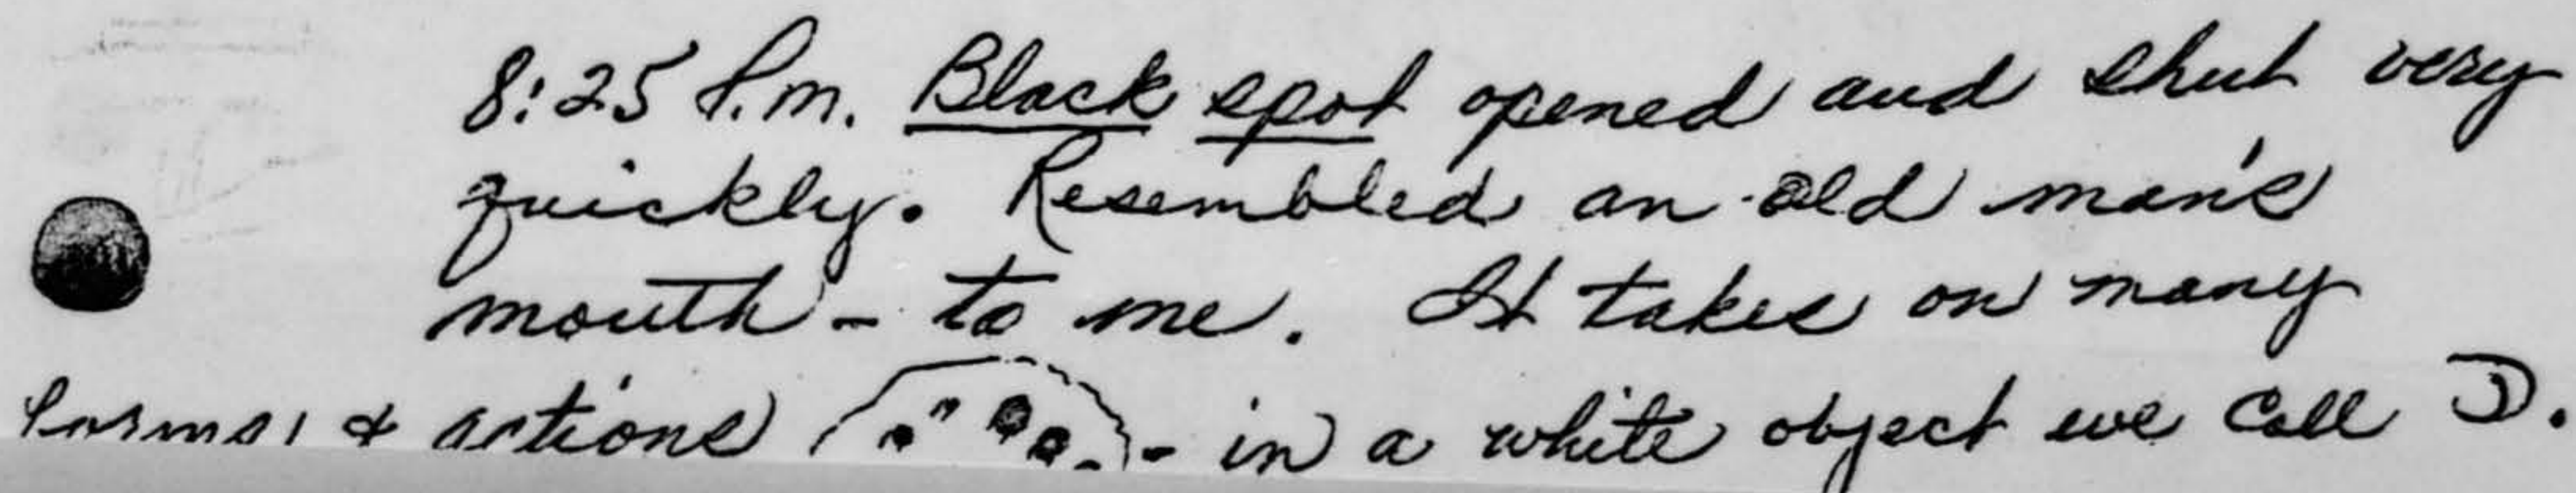 8:25 P.m. Black spot opened and shut very
quickly. Resembled an old man's
mouth - to me. It takes on many
forms, & actions - in a white object we call D.